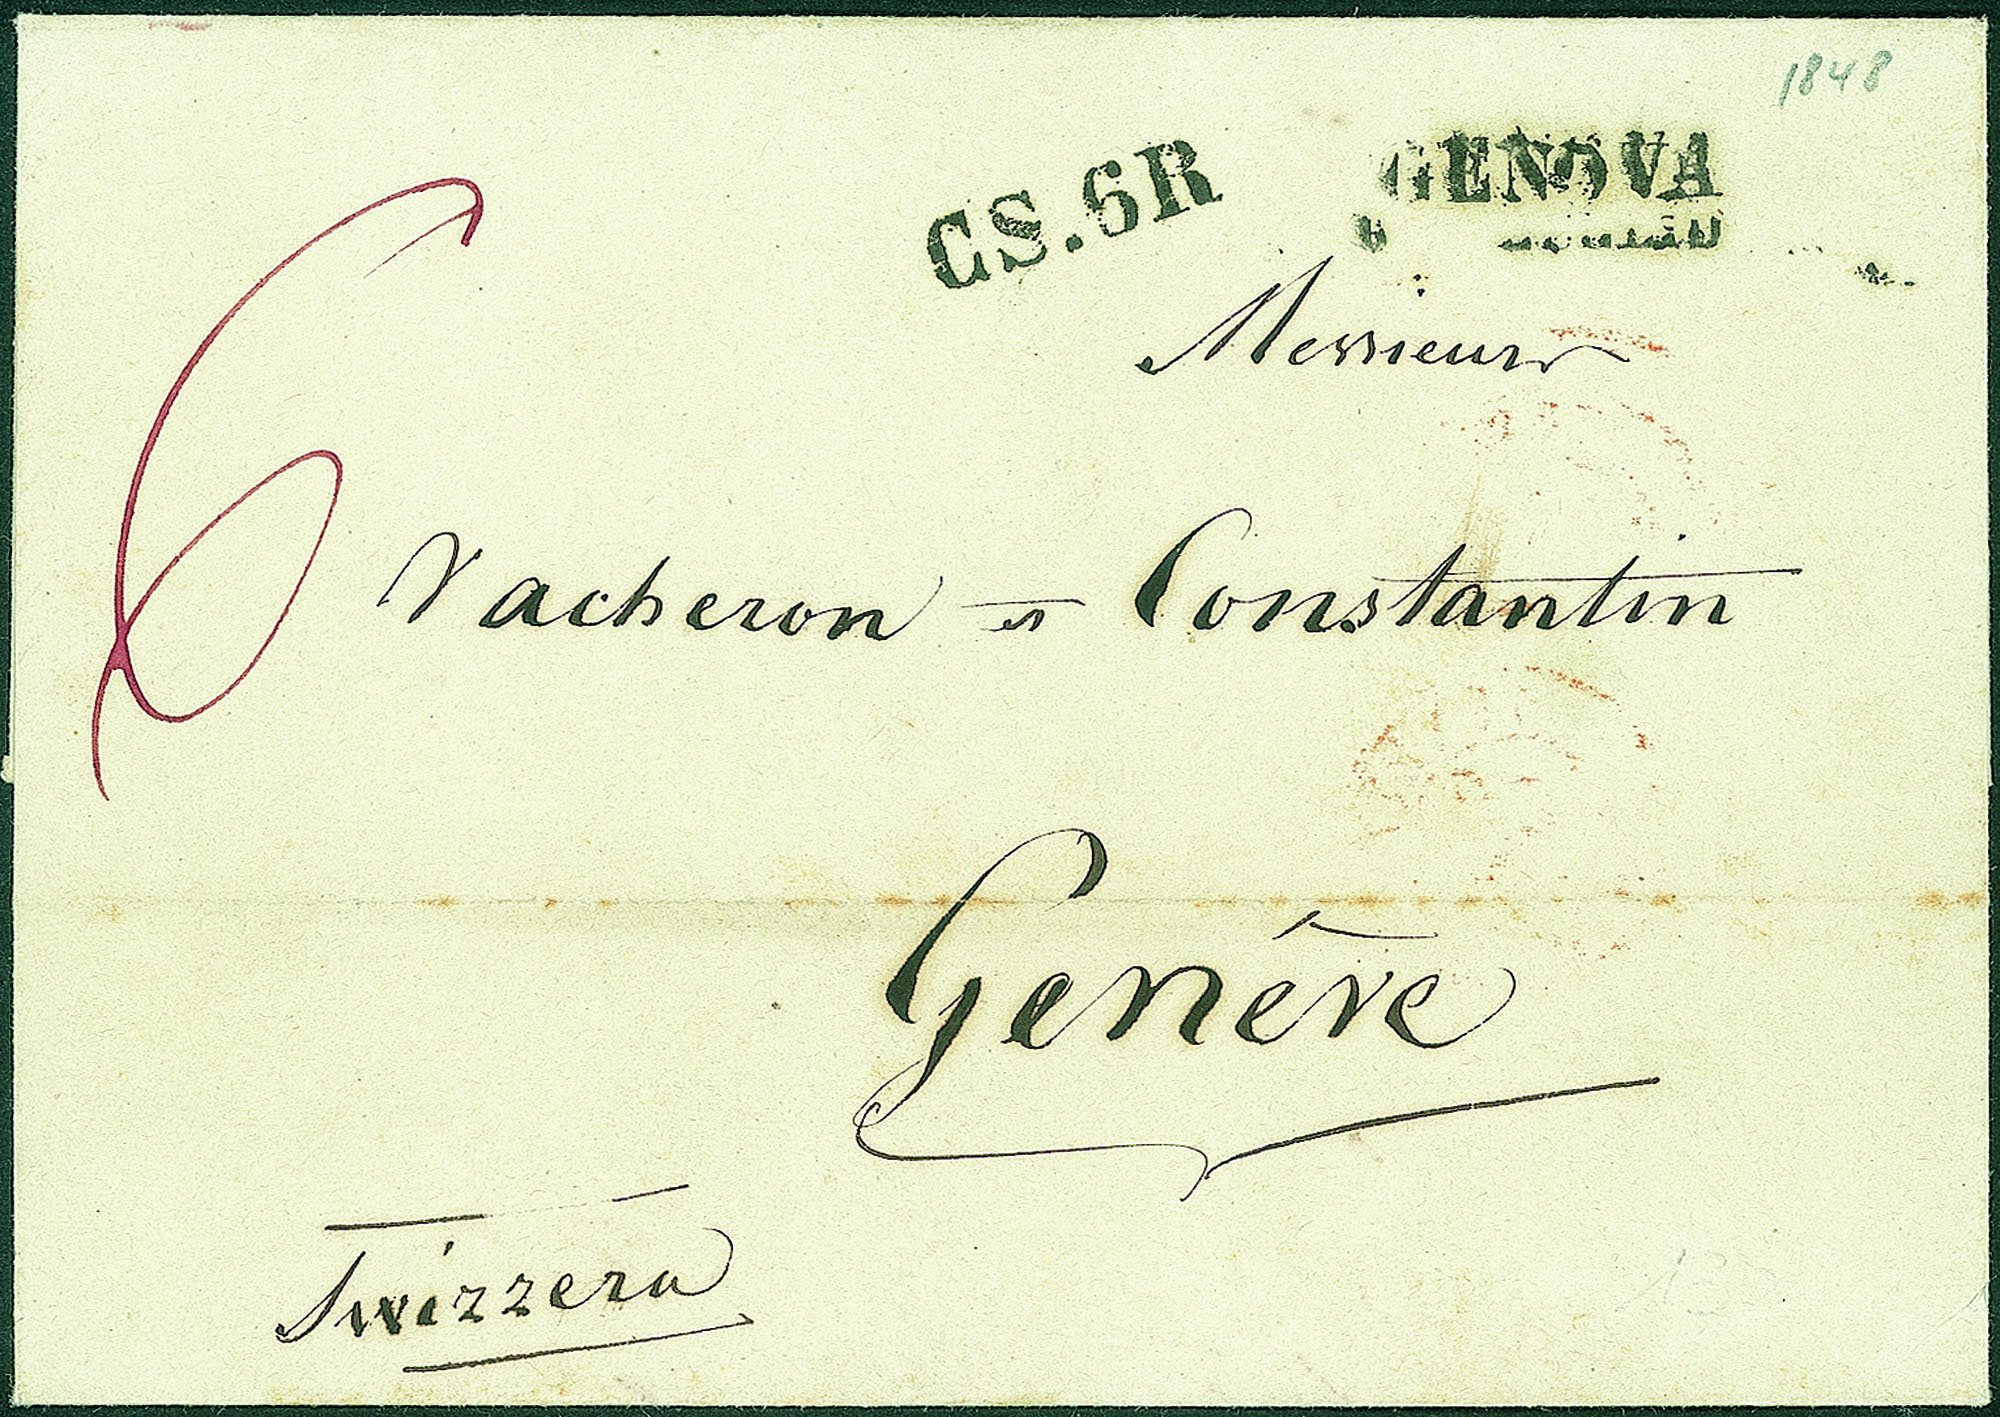 1848
CS.6R
GENOVA
6
Messieurs
Vacheron et Constantin
Genève
Swizzera